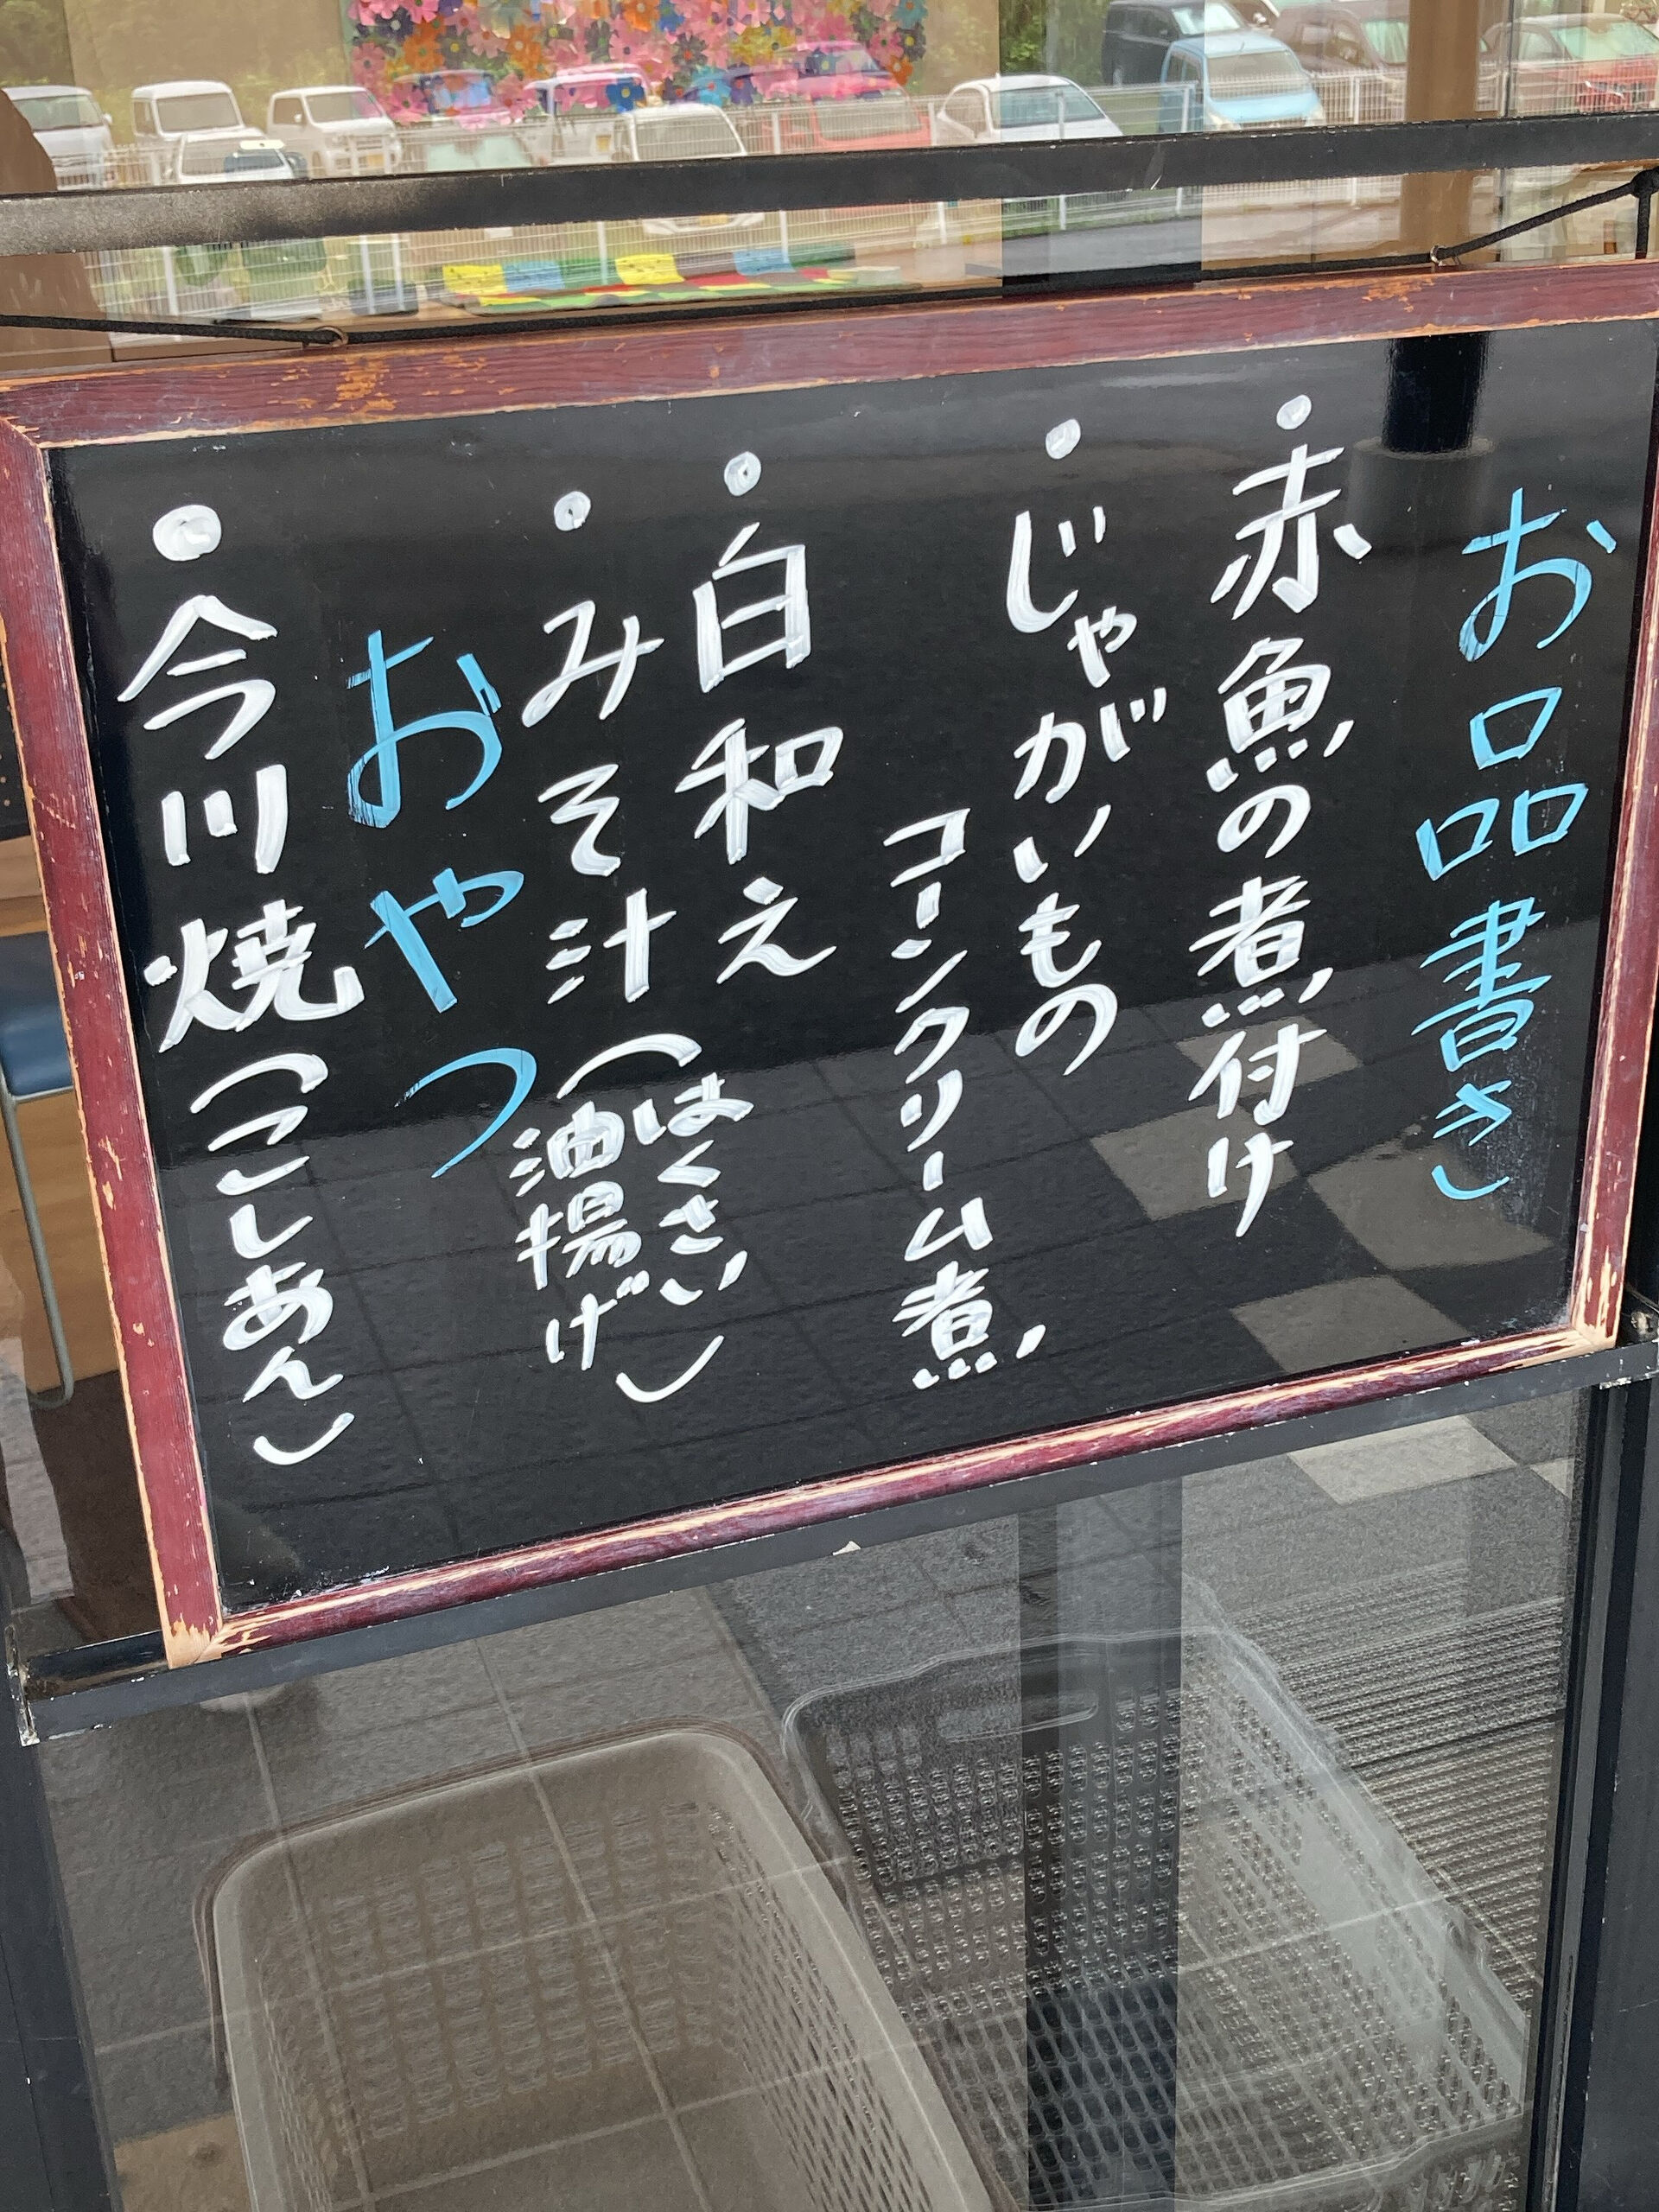 お品書き
・赤魚の煮付け
・じゃがいもの
コーンクリーム煮
・白和え
・みそ汁（はくさい
油揚げ）
おやつ
・今川焼（こしあん）